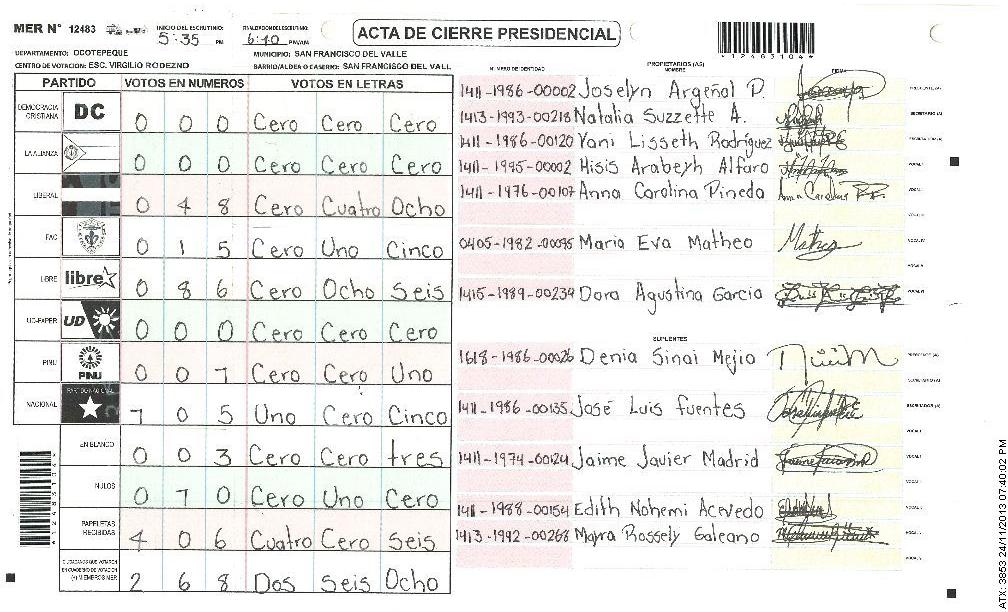 MER N° 12483
INICIO DEL ESCRUTINIO: 5:35 PM
FINALIZACION DEL ESCRUTINIO: 6:40 PM/AM
ACTA DE CIERRE PRESIDENCIAL
*12483104*
DEPARTAMENTO: OCOTEPEQUE
MUNICIPIO: SAN FRANCISCO DEL VALLE
CENTRO DE VOTACIÓN: ESC. VIRGILIO RODEZNO
BARRIO/ALDEA O CASERIO: SAN FRANCISCO DEL VALL
PARTIDO VOTOS EN NUMEROS VOTOS EN LETRAS
DEMOCRACIA CRISTIANA DC 0 0 0 Cero Cero Cero
LA ALIANZA 0 0 0 Cero Cero Cero
LIBERAL 0 4 8 Cero Cuatro Ocho
FAC 0 1 5 Cero Uno Cinco
LIBRE libre 0 8 6 Cero Ocho Seis
UD-FAPER UD 0 0 0 Cero Cero Cero
PINU PINU 0 0 1 Cero Cero Uno
NACIONAL PARTIDO NACIONAL 1 0 5 Uno Cero Cinco
EN BLANCO 0 0 3 Cero Cero tres
NULOS 0 1 0 Cero Uno Cero
PAPELETAS RECIBIDAS 4 0 6 Cuatro Cero Seis
CIUDADANOS QUE VOTARON EN CUADERNO DE VOTACION (+) MIEMBROS MER 2 6 8 Dos Seis Ocho
NUMERO DE IDENTIDAD PROPIETARIOS (AS) NOMBRE FIRMA
1411-1986-00002 Joselyn Argeñal P. PRESIDENTE (A)
1413-1993-00218 Natalia Suzzette A. SECRETARIO (A)
1411-1986-00120 Yoni Lisseth Rodríguez ESCRUTADOR (A)
1411-1995-00002 Hisis Arabeyh Alfaro VOCAL I
1411-1976-00107 Anna Carolina Pineda
0405-1982-00095 Maria Eva Matheo VOCAL IV
1415-1989-00234 Dora Agustina Garcia
SUPLENTES
1618-1986-00026 Denia Sinai Mejio PRESIDENTE (A)
SECRETARIO (A)
1411-1986-00135 José Luis Fuentes ESCRUTADOR (A)
1411-1974-00124 Jaime Javier Madrid
1411-1988-00154 Edith Nohemi Acevedo
1413-1992-00268 Mayra Rossely Galeano
*12483104*
ATX: 3853 24/11/2013 07:40:02 PM